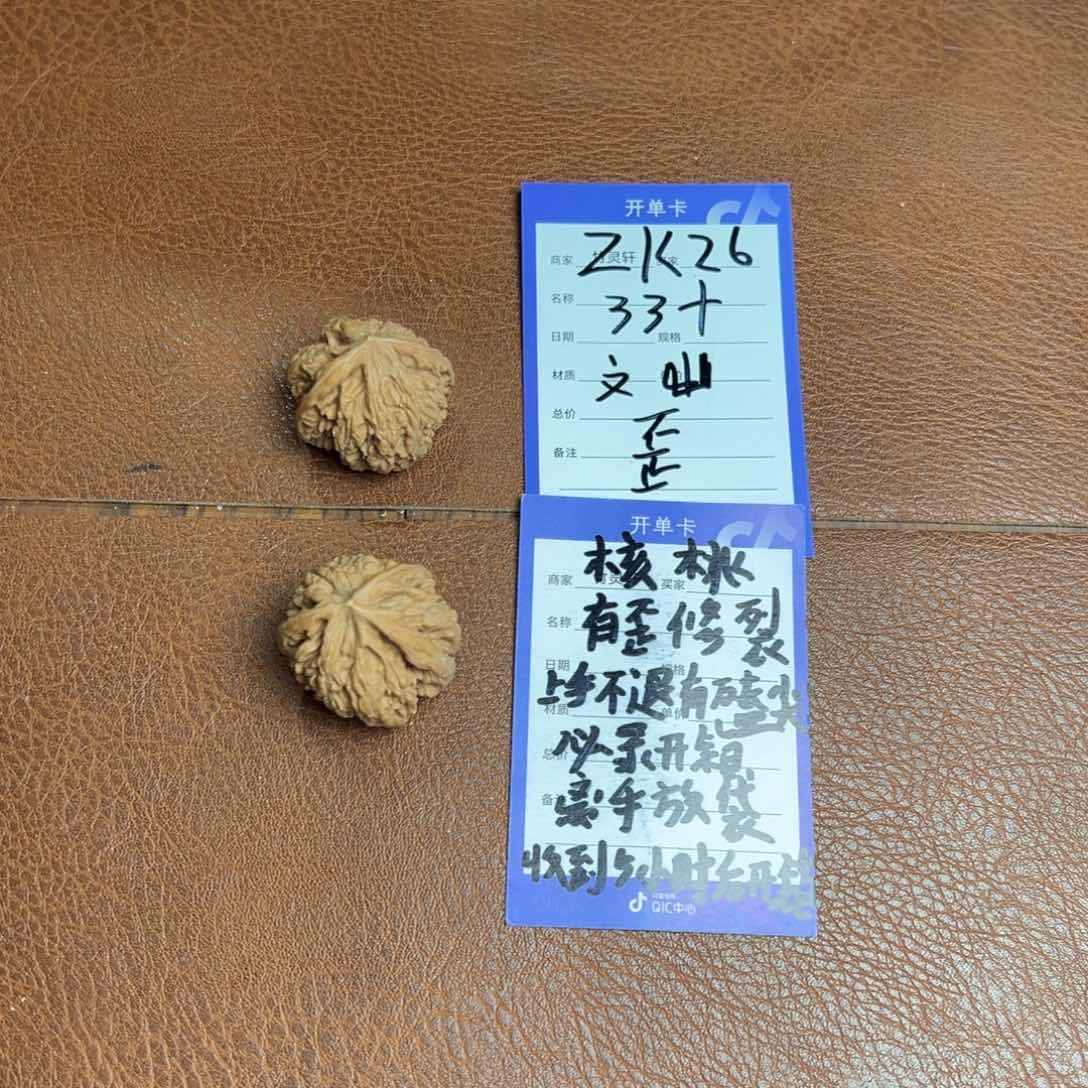 开单卡
商家 灵轩
ZK26
名称
33+
日期 规格
材质
文
总价
歪
备注
开单卡
核桃
商家 买家
有歪修裂
名称
日期 规格
上手不退有磕尖
材质 单价
必录开箱
总价
备
手放袋
收到5小时后开袋
QIC中心